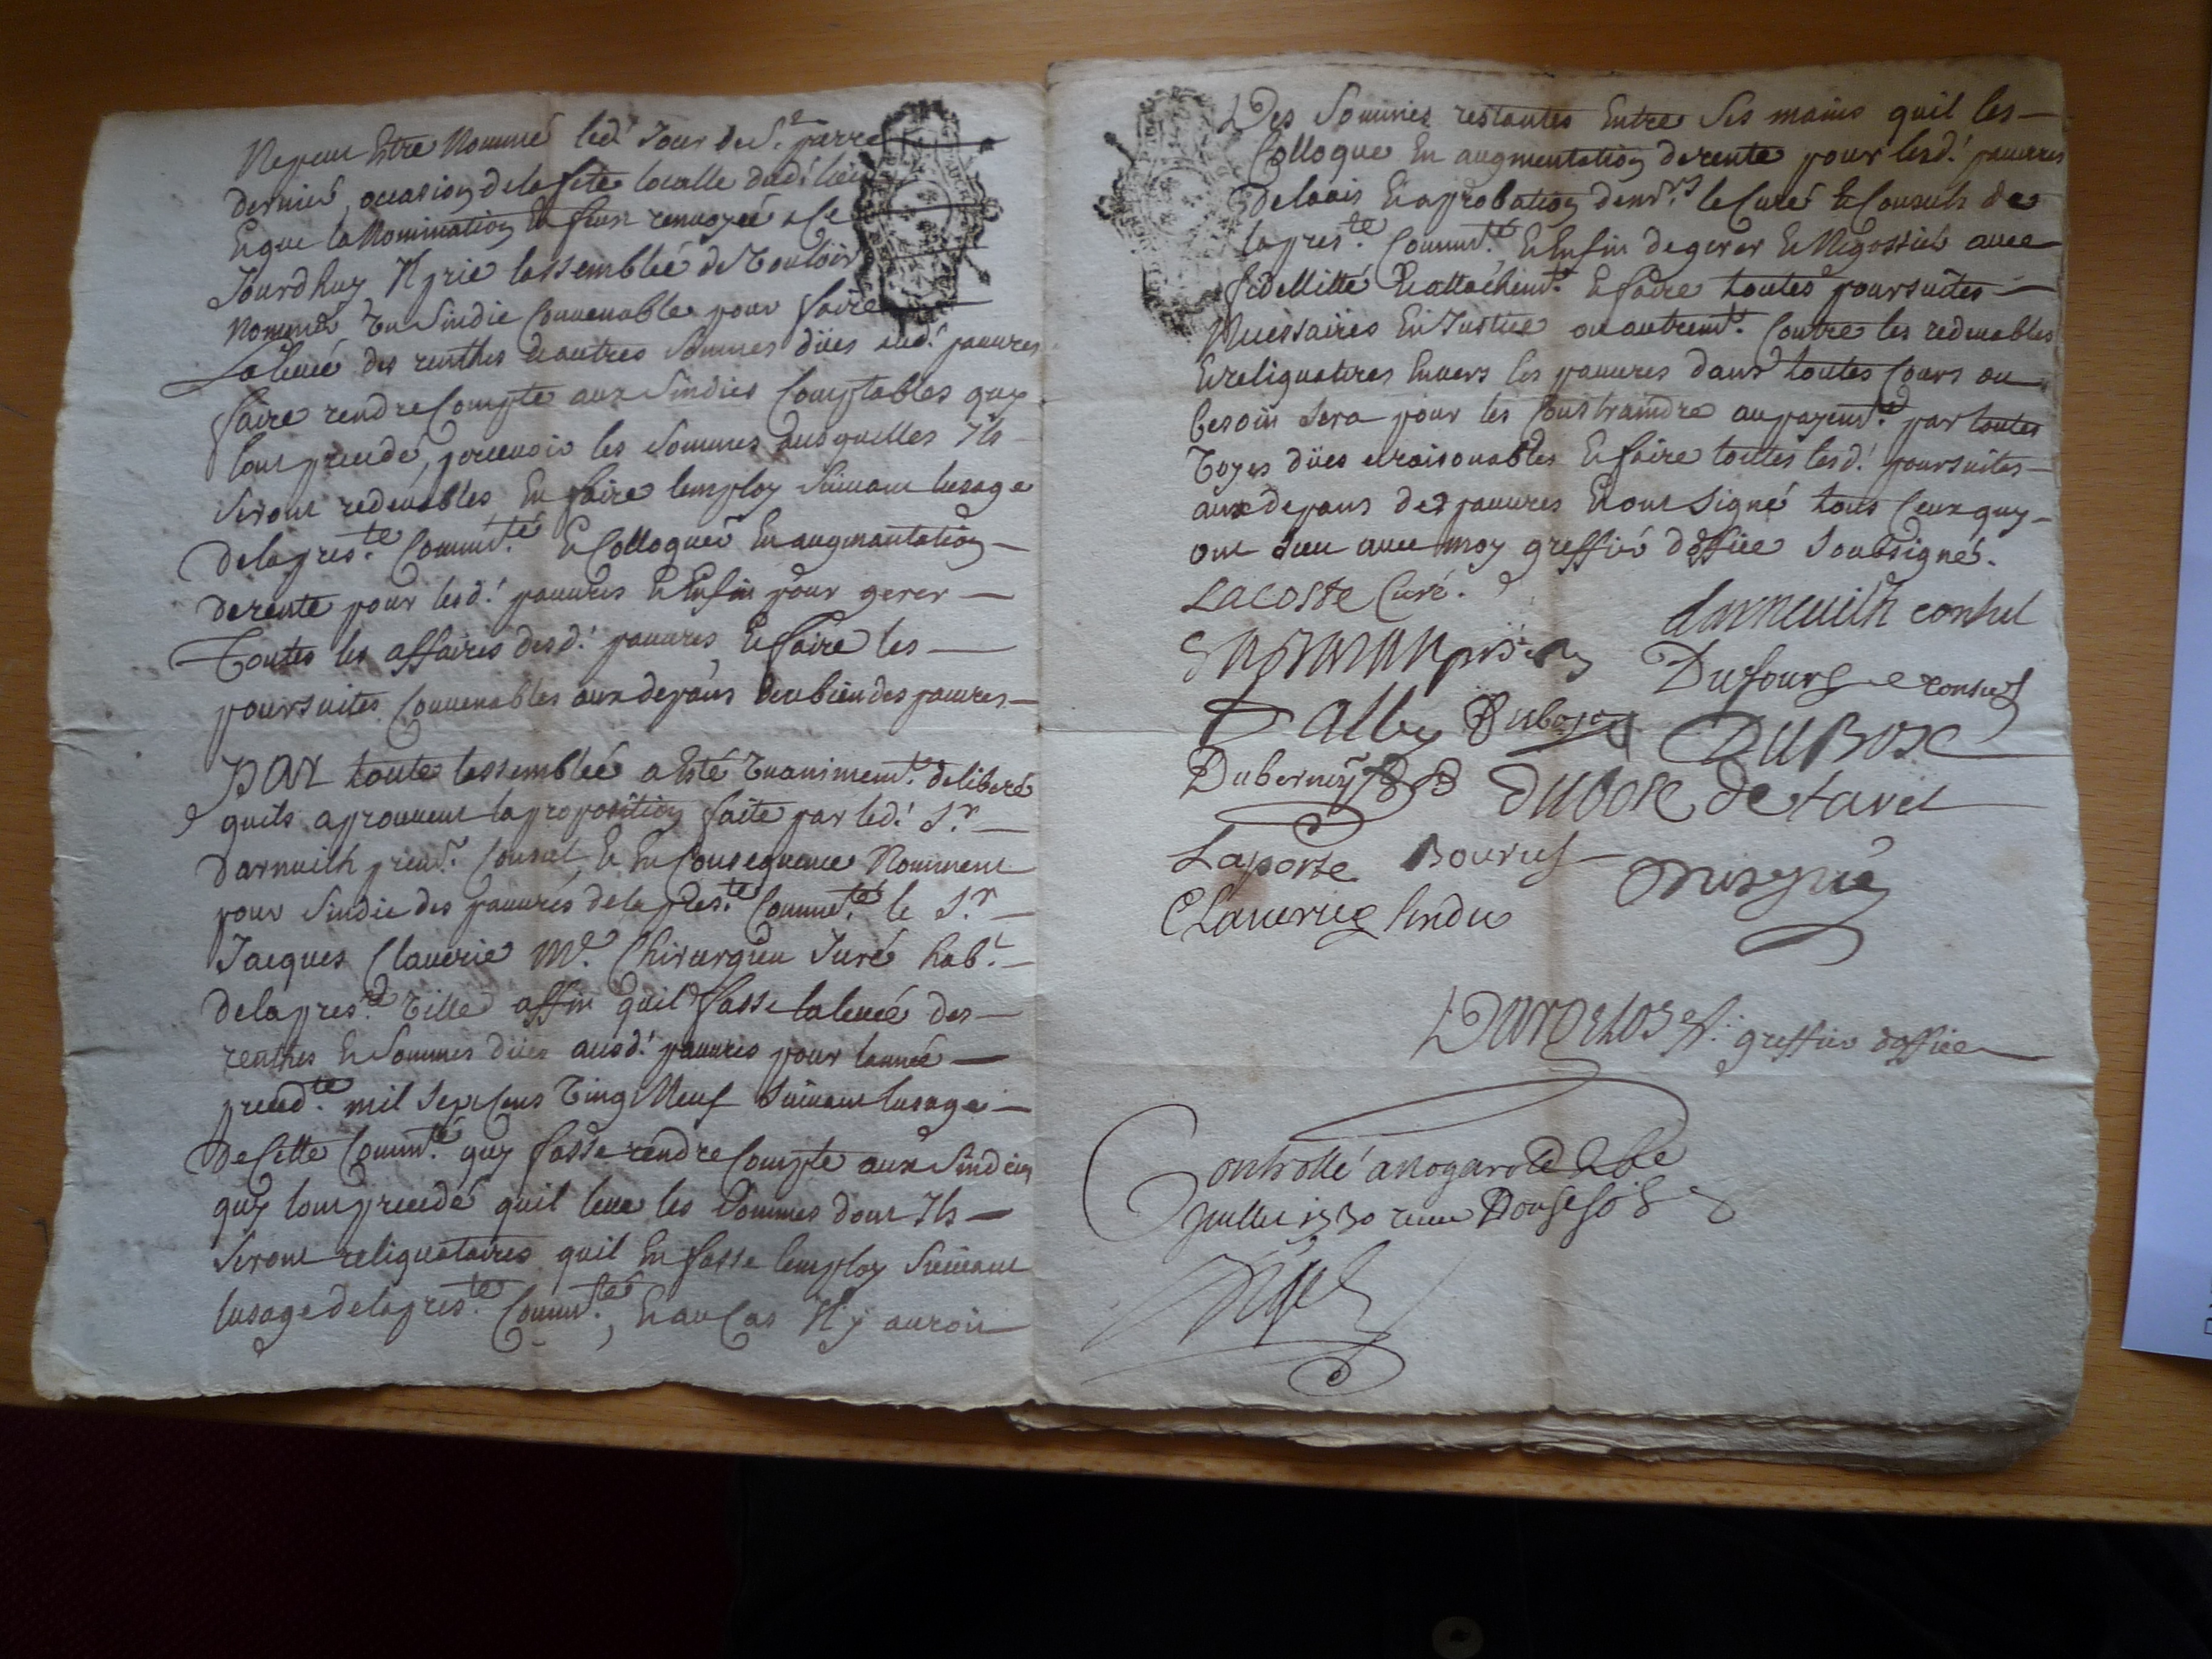 Ne peut Estre Nommé led.t Jour de S.t pierre
dernier, occasion de la fete localle dud.t lieu
Et que la Nomination En feust renvoyée a Ce
Jourdhuy Il prie lassemblée de Vouloir
Nommer Un Sindic Convenable pour faire
La levée des renthes Et autres Sommes dües aud.t pauvres
faire rendre Compte aux Sindics Comptables quy
lont precedé, percevoir les Sommes dusquelles Ils
Seront redevables En faire lemploy Suivant lusage
de la pres.te Commu.té Et Colloquer En augmantation
de rente pour lesd.t pauvres Et Enfin pour gerer
Toutes les affaires desd.t pauvres, Et faire les
poursuites Convenables aux depans du bien des pauvres
PAR toute lassemblée a Esté Unaniment. deliberé
quils aprouvent la proposition faite par led.t S.r
Darnuilh prem.r Consul, Et En Consequence Nomment
pour Sindic des pauvres de la pres.te Commu.té le S.r
Jacques Claverie M.e Chirurgien Juré hab.t
de la pres.te Ville affin quil fasse la levée des
renthes Et Sommes dües ausd.t pauvres pour lannée
preced.te mil Sept Cens Ving Neuf Suivant lusage
de Cette Commu.té quy fasse rendre Compte aux Sindics
quy lont precedé quil leve les Sommes dont Ils
Seront reliquataires quil En fasse lemploy Suivant
lusage de la pres.te Commu.té, Et au Cas Il y auroit
Des Sommes restantes Entre Ses mains quil les
Colloque En augmentation de rente pour lesd.t pauvres
de lavis Et aprobation de m.rs le Curé Et Consuls de
la pres.te Commu.té, Et Enfin de gerer Et Negossier avec
fidellitté Et attachem.t Et faire toutes poursuites
Necessaires En Justice ou autrem.t Contre les redevables
Et reliquatires Envers les pauvres dans toutes Cours ou
besoin Sera pour les Constraindre au payem.t par toutes
Voyes dües et raisonables Et faire toutes lesd.t poursuites
aux depans des pauvres Et ont Signé tous Ceux quy
ont Sceu avec moy greffier doffice Soubsigné.
LACOSTE Curé.
darneuilh consul
Dufourg consul
Dalby Dubosq
DUBOSC
Duberney
DUBOSC de tavel
Laporte Bourus
Claverie Sindic
greffier doffice
Controllé a Nogaro le
Juillet 1730 receu Douse sols